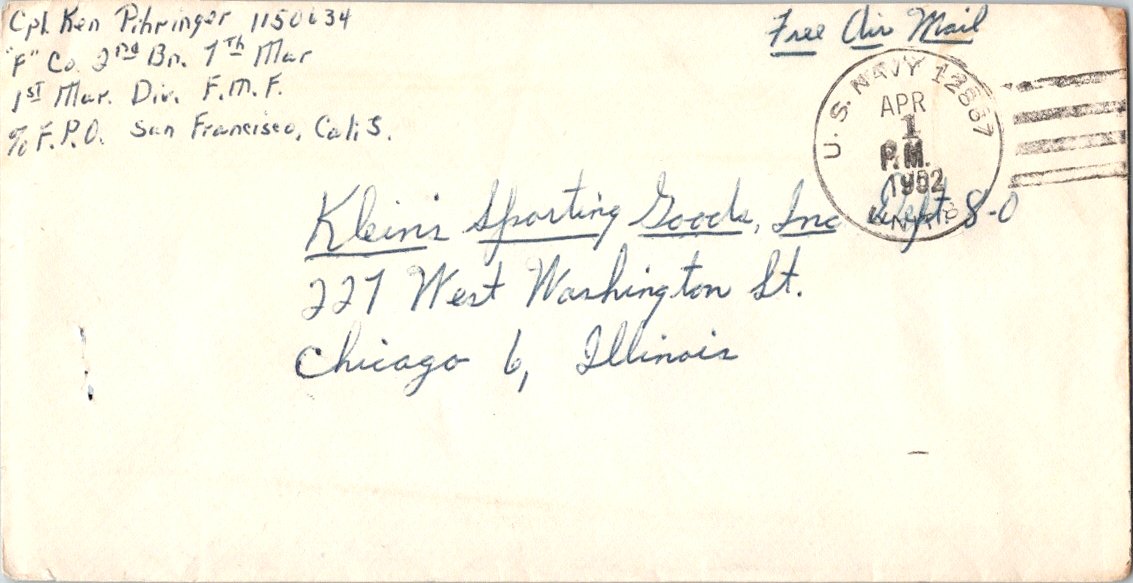 Cpl. Ken Pihringer 1150634
"F" Co. 2nd Bn. 7th Mar
1st Mar. Div. F.M.F.
% F.P.O. San Francisco, Calif.
Free Air Mail
U.S. NAVY 12867
APR
1
P.M.
1952
Klein's Sporting Goods, Inc Dept 8-0
227 West Washington St.
Chicago 6, Illinois